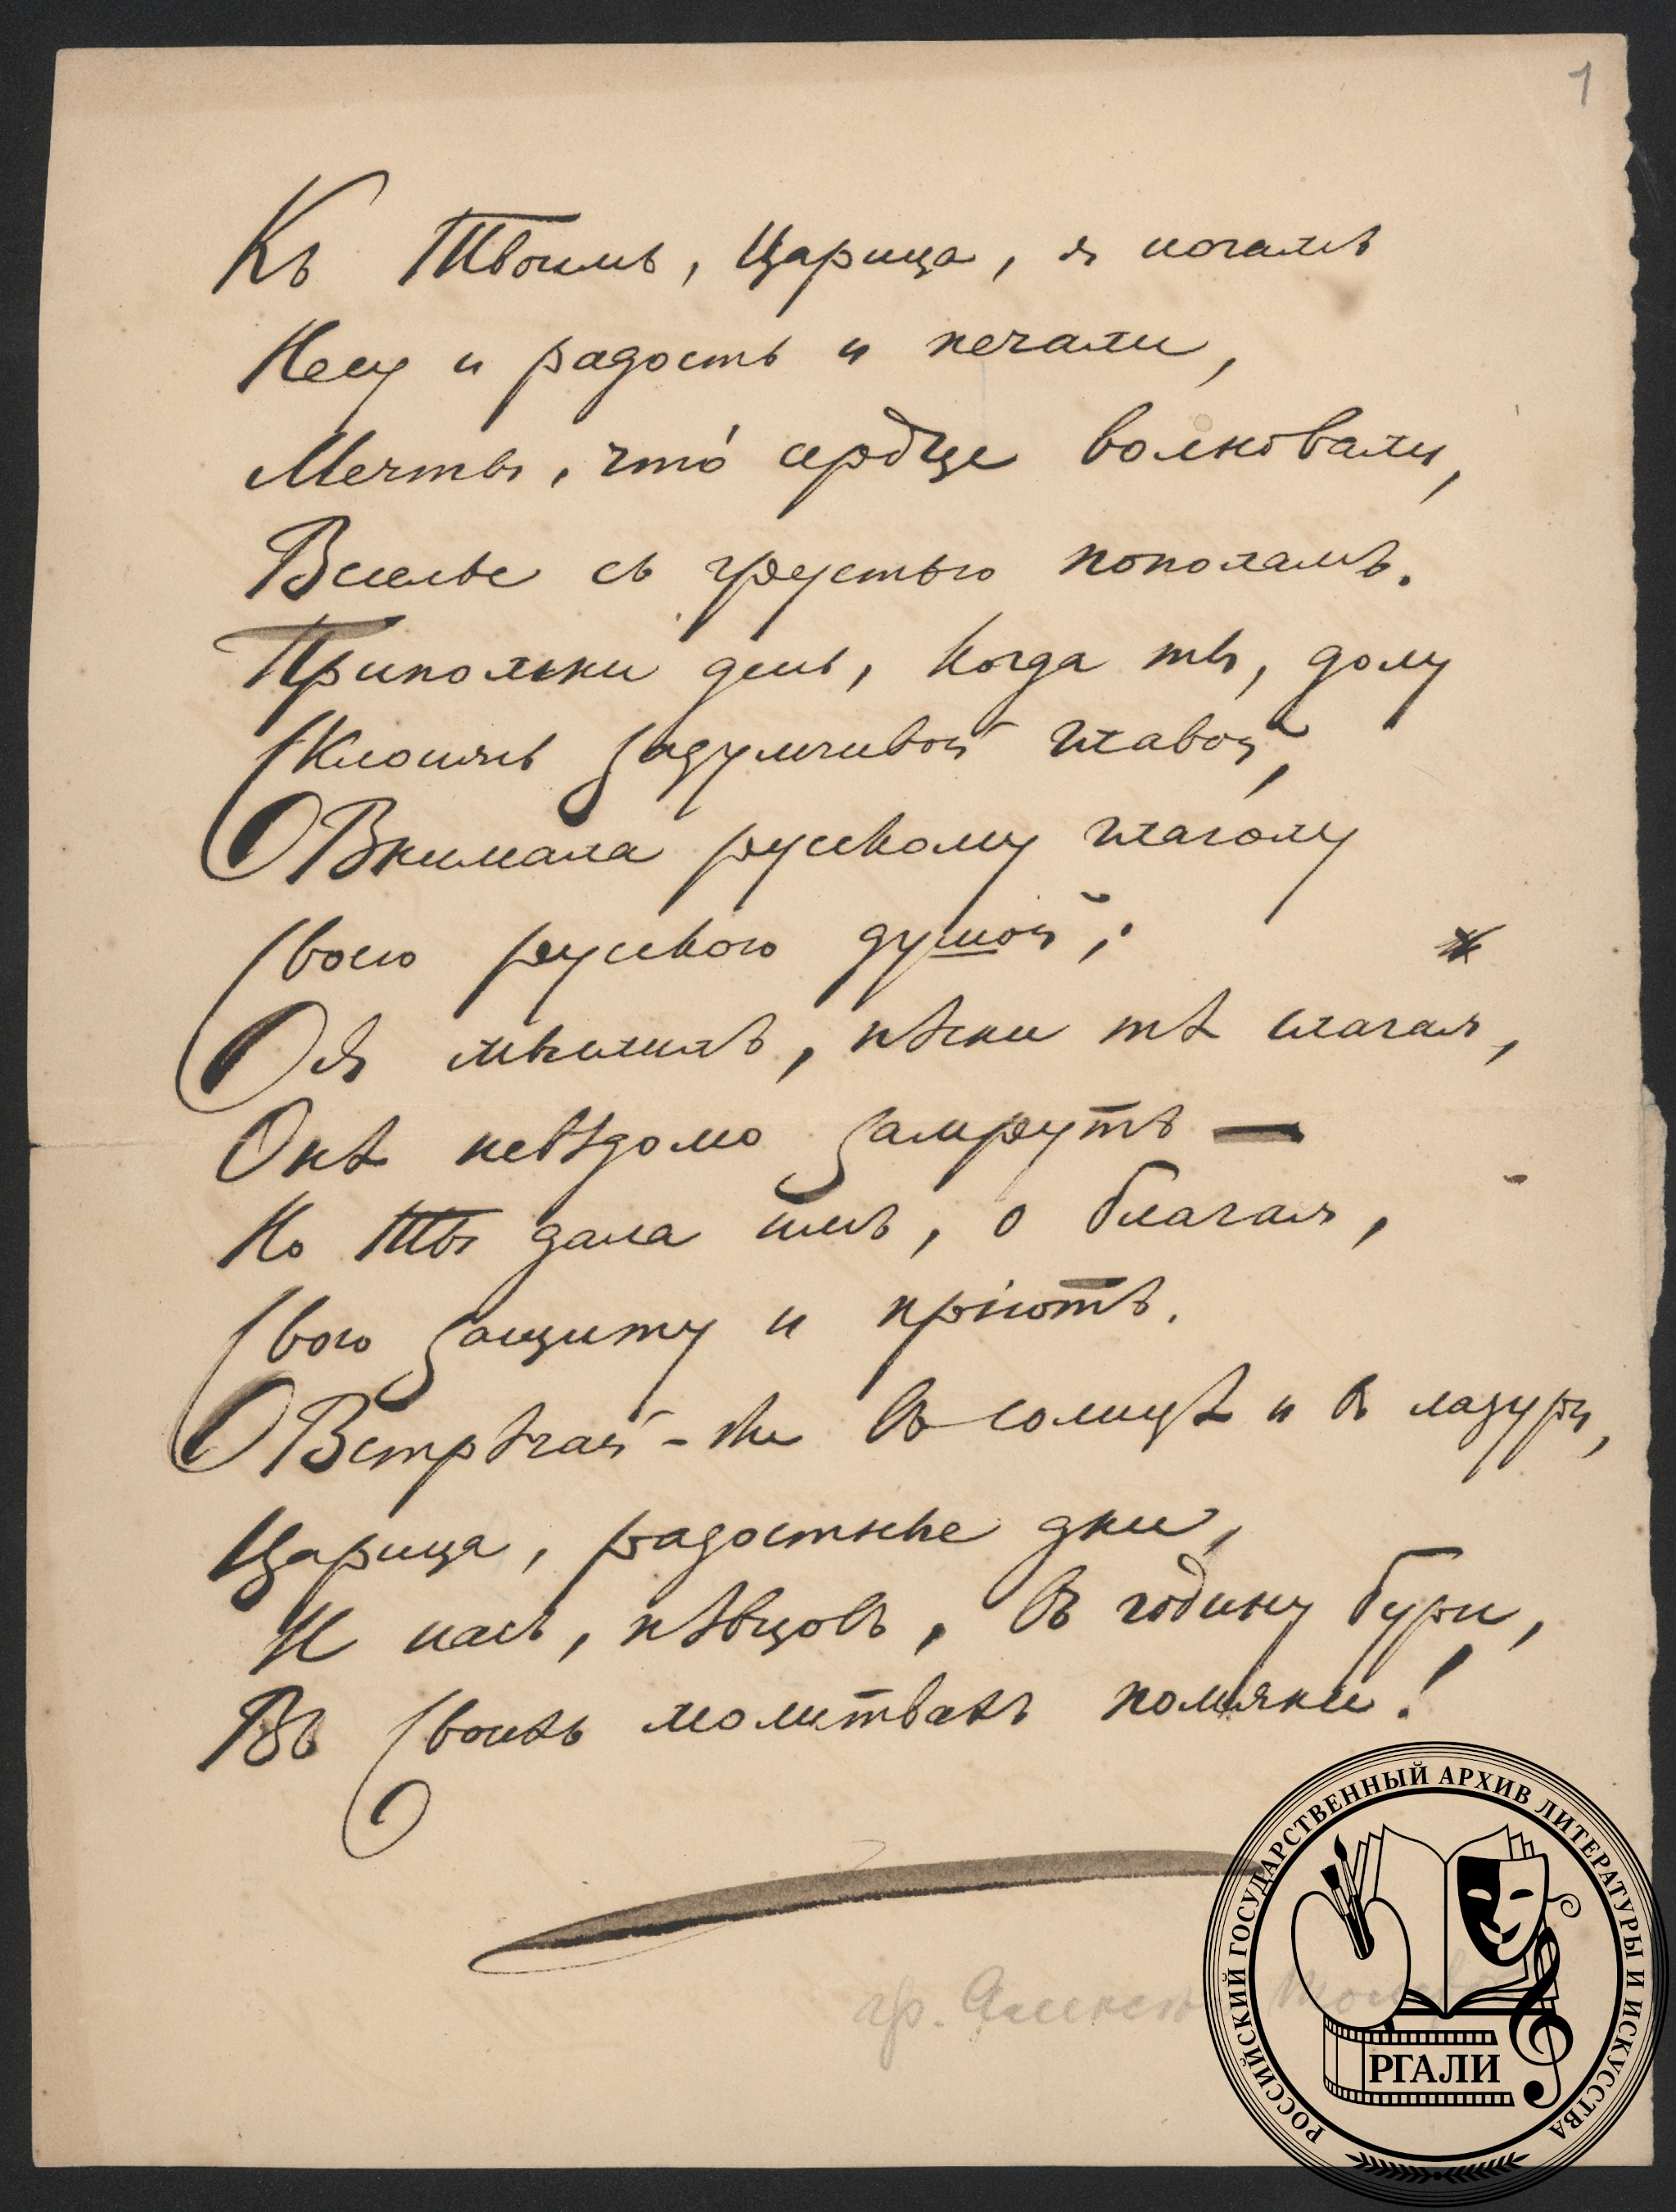 1
Къ Твоимъ, Царица, я ногамъ
Несу и радость и печали,
Мечты, что́ сердце волновали,
Веселье съ грустью пополамъ.
Припомни день, когда ты, долу
Склонясь задумчивой главой,
Внимала русскому глаголу
Своею русскою душой;
*
Я мыслилъ, пѣсни тѣ слагая,
Онѣ невѣдомо замрутъ —
Но Ты дала имъ, о благая,
Свою защиту и пріютъ.
Встрѣчай-же въ солнцѣ и въ лазури,
Царица, радостные дни,
И насъ, пѣвцовъ, въ годину бури,
Въ Своихъ молитвахъ помяни!
гр. Алексѣ
РОССИЙСКИЙ ГОСУДАРСТВЕННЫЙ АРХИВ ЛИТЕРАТУРЫ И ИСКУССТВА
РГАЛИ